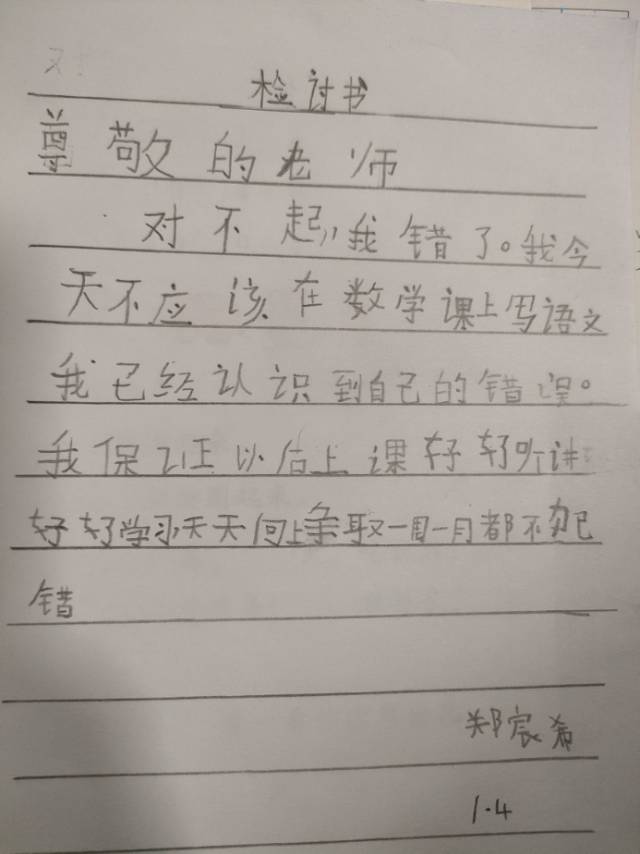 检讨书
尊敬的老师
对不起,我错了。我今
天不应该在数学课上写语文
我已经认识到自己的错误。
我保证以后上课好好听讲
好好学习,天天向上争取一周一月都不犯
错
郑宸希
1.4